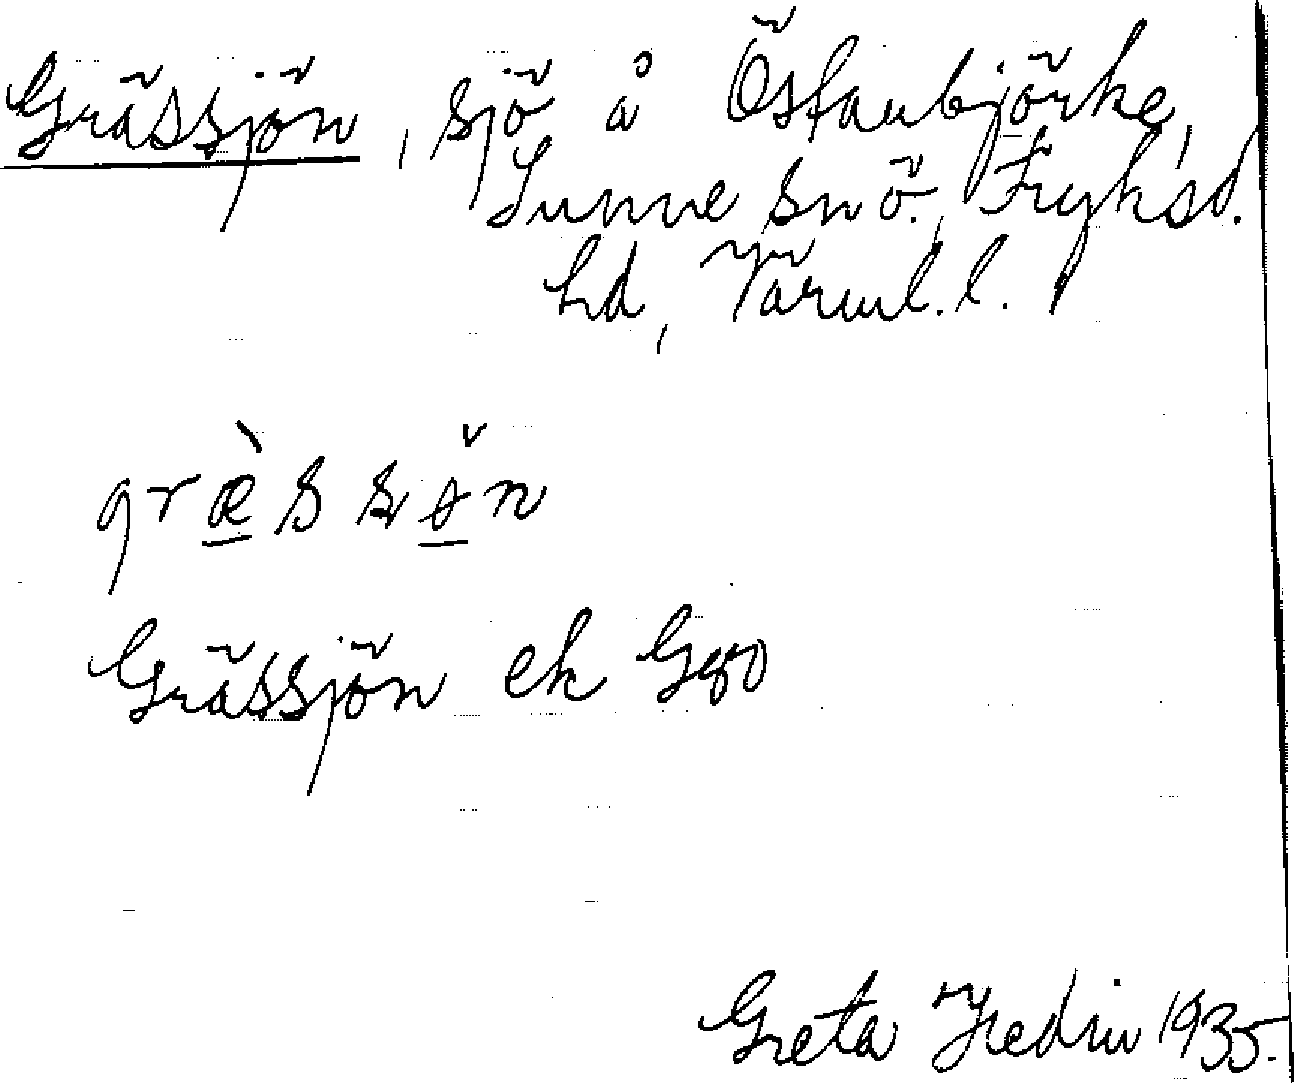 Grässjön, sjö å Östanbjörke,
Sunne snö., Fryksd.
hd, Värml. l.
Grässjön ek
Greta Hedin 1935.